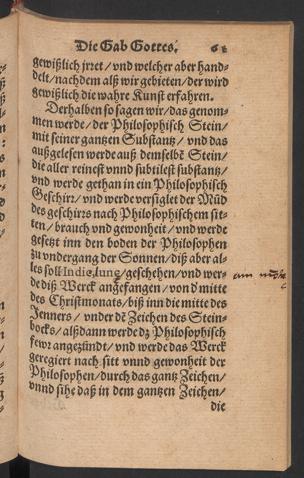 Die Gab Gottes.
gewißlich jrret / vnd welcher aber hand-
delt / nachdem alß wir gebieten / der wird
gewißlich die wahre Kunst erfahren.
Derhalben so sagen wir / das genom-
men werde / der Philosophisch Stein /
mit seiner gantzen Substantz / vnd das
außgelesen werde auß demselbē Stein /
die aller reinest vnnd subtilest substantz /
vnd werde gethan in ein Philosophisch
Geschirr / vnd werde versiglet der Mūd
des geschirrs nach Philosophischem sit-
ten / brauch vnd gewonheit / vnd werde
gesetzt inn den boden der Philosophen
zu vndergang der Sonnen / diß aber al-
les soll geschehen / vnd wer-
de diß Werck angefangen / von d' mitte
des Christmonats / biß inn die mitte des
Jenners / vnder dē Zeichen des Stein-
bocks / alßdann werde dz Philosophisch
fewr angezündt / vnd werde das Werck
geregiert nach sitt vnnd gewonheit der
Philosophen / durch das gantz Zeichen /
vnnd sihe daß in dem gantzen Zeichen /
die